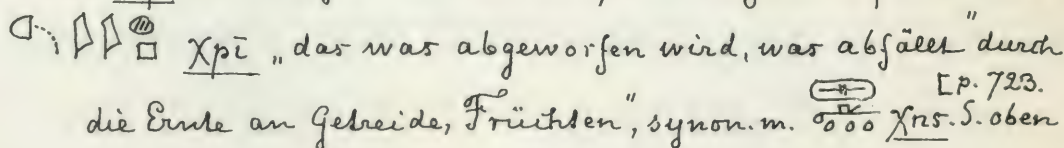 χpī „das was abgeworfen wird, was abfällt" durch
[p. 723.
die Ernte an Getreide, Früchten", synon. m. χns. S. oben